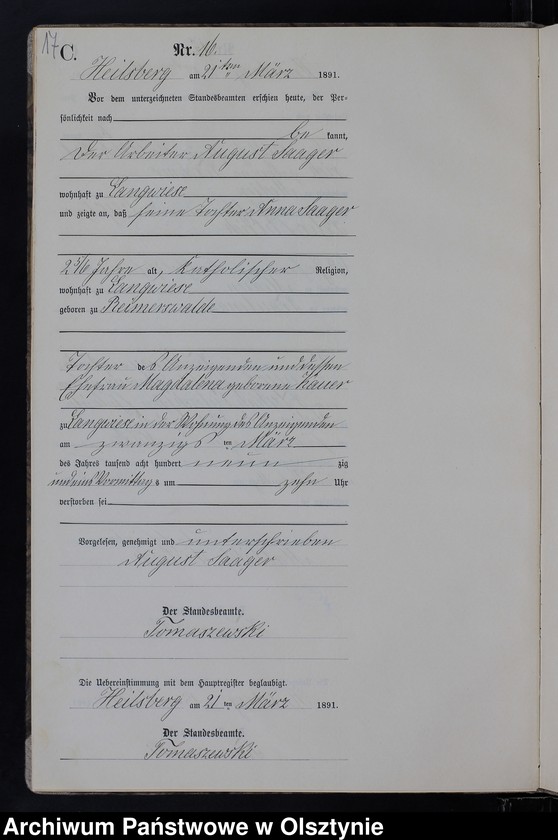 17
C.
Nr. 16.
Heilsberg am 21ten März 1891.
Vor dem unterzeichneten Standesbeamten erschien heute, der Per-
sönlichkeit nach
be kannt,
der Arbeiter August Saager
wohnhaft zu Langwiese
und zeigte an, daß seine Tochter Anna Saager
Jahre alt, Katholischer Religion,
wohnhaft zu Langwiese
geboren zu Reimerswalde
Tochter des Anzeigenden und dessen
Ehefrau Magdalena geborene
zu Langwiese in der Wohnung des Anzeigenden
am zwanzigsten März
des Jahres tausend acht hundert neun zig
und eins Vormittags um zehn Uhr
verstorben sei
Vorgelesen, genehmigt und unterschrieben
August Saager
Der Standesbeamte.
Tomaszewski
Die Uebereinstimmung mit dem Hauptregister beglaubigt.
Heilsberg am 21ten März 1891.
Der Standesbeamte.
Tomaszewski
Archiwum Państwowe w Olsztynie